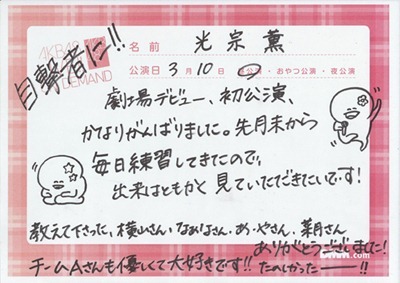 目撃者に!!
AKB48
DEMAND
名前 光宗薫
公演日 3月10日 昼公演・おやつ公演・夜公演
劇場デビュー、初公演、
かなりがんばりました。先月末から
毎日練習してきたので、
出来はともかく見ていただきたいです!
教えて下さった、横山さん、なかまさん、あ・やさん、菜月さん
ありがとうございました!
チームAさんも優しくて大好きです!! たのしかったーー!!
DMM.com